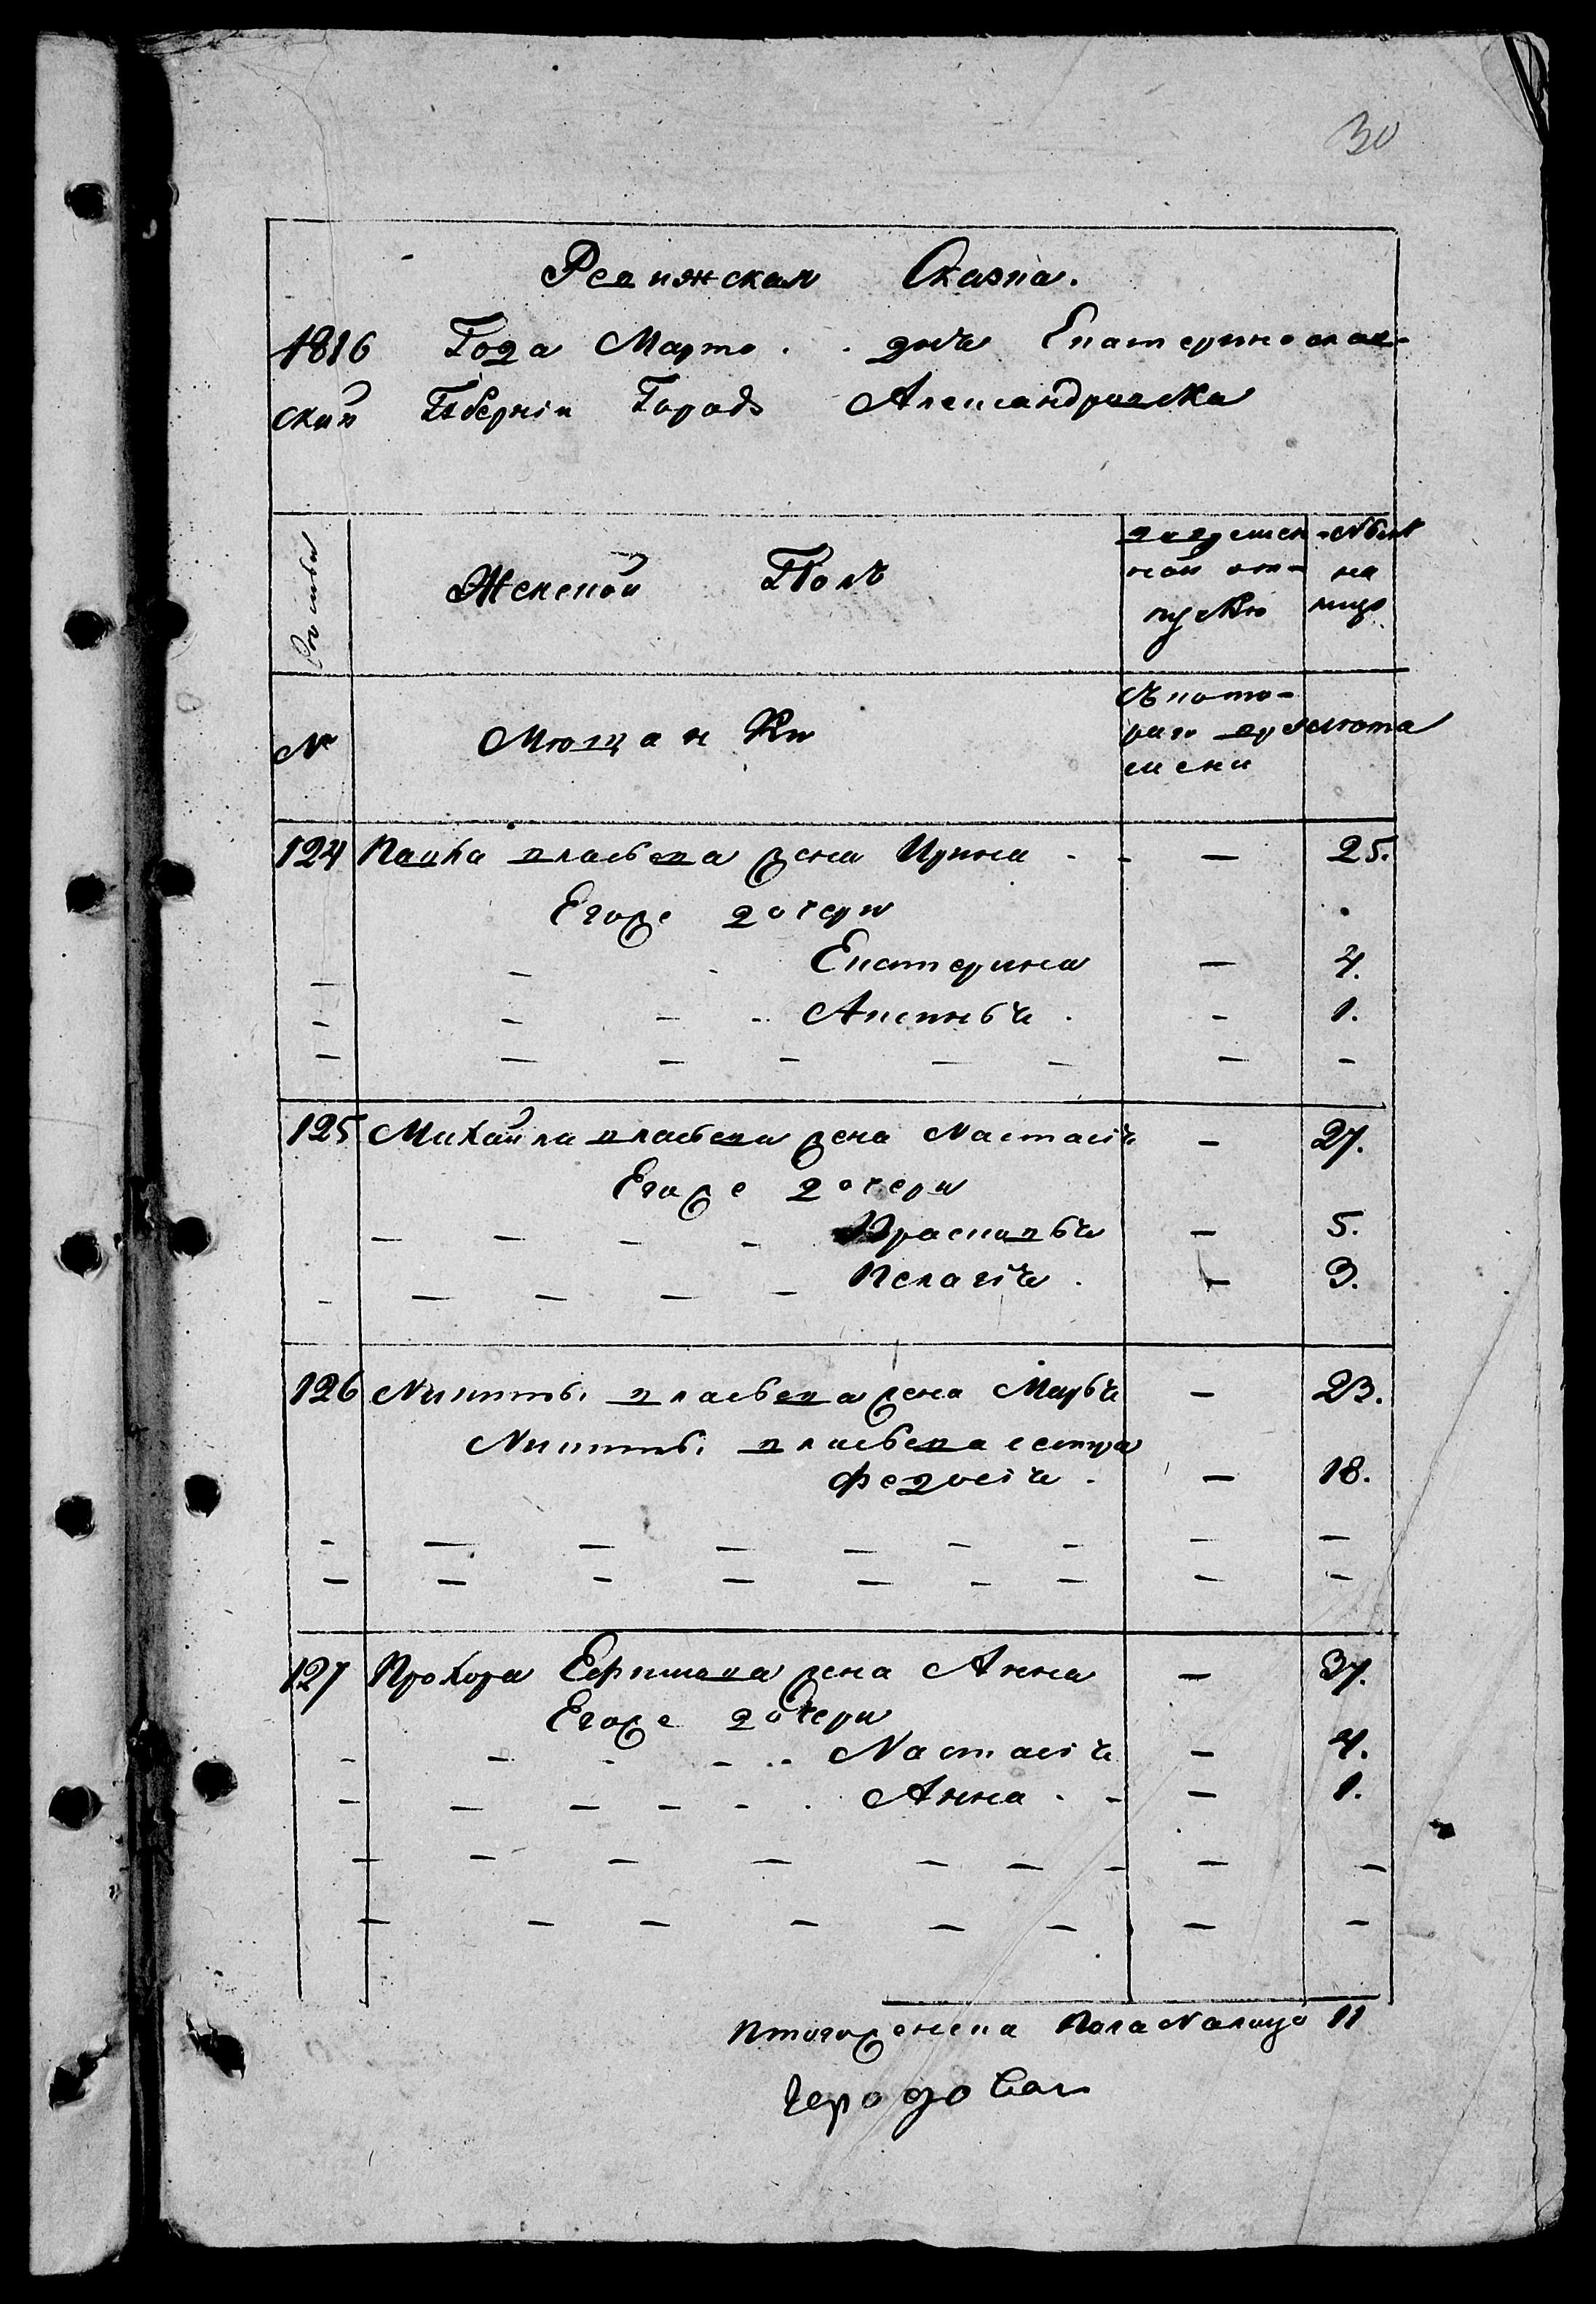 30
Ревижская Сказка.
1816 Года Марта . . дня Екатеринослав-
ской Губерніи Городъ Александровска
Женской Полъ
во времен
ной от-
лучкѣ
Нынѣ
на
лицо
№
Мѣщанки
Съ кото-
раго времени
Лѣта
124 Павла Власова жена Ирина . . — 25.
Егоже дочери
Екатерина — 4.
Аксинья . — 1.
125 Михайла Власова жена Настасія — 27.
Егоже дочери
Прасковья — 5.
Пелагія . — 3.
126 Никиты Власова жена Марья — 23.
Никиты Власова сестра
Федосія . — 18.
127 Прохора Ефимова жена Анна — 37.
Егоже дочери
Настасія — 4.
Анна . — 1.
Итого женска Пола Налицо 11